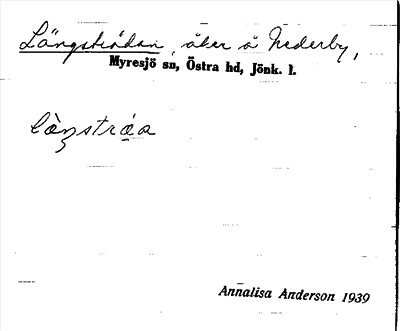 Långstrådan, åker å Nederby,
Myresjö sn, Östra hd, Jönk. l.
làŋstráa
Annalisa Anderson 1939